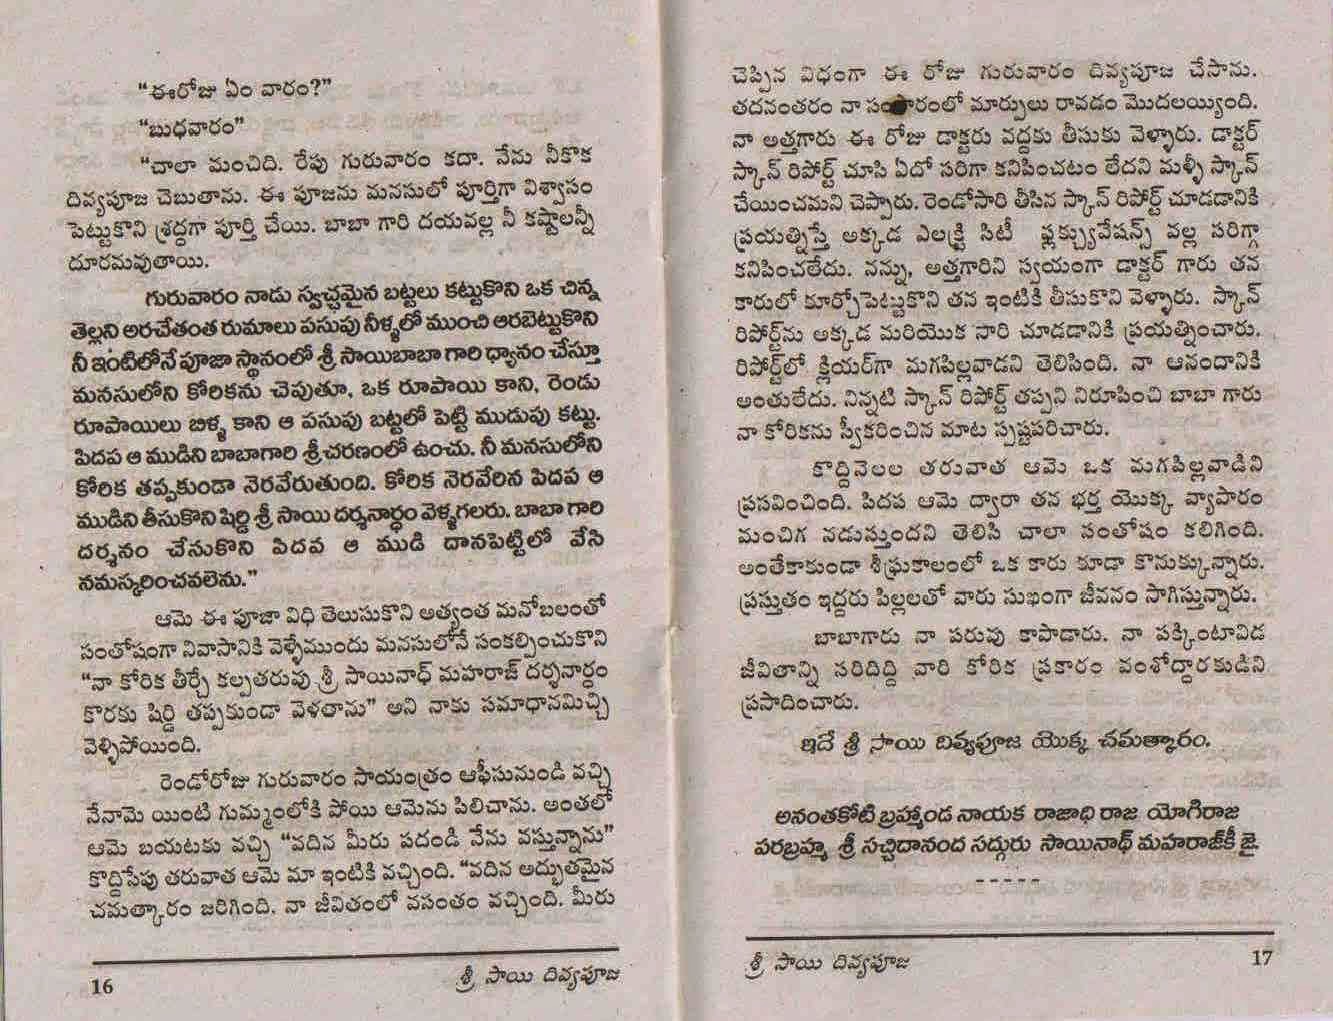 “ఈరోజు ఏం వారం?”
“బుధవారం”
“చాలా మంచిది. రేపు గురువారం కదా. నేను నీకొక
దివ్యపూజ చెబుతాను. ఈ పూజను మనసులో పూర్తిగా విశ్వాసం
పెట్టుకొని శ్రద్ధగా పూర్తి చేయి. బాబా గారి దయవల్ల నీ కష్టాలన్నీ
దూరమవుతాయి.
గురువారం నాడు స్వచ్ఛమైన బట్టలు కట్టుకొని ఒక చిన్న
తెల్లని అరచేతంత రుమాలు పసుపు నీళ్ళలో ముంచి ఆరబెట్టుకొని
నీ ఇంటిలోనే పూజా స్థానంలో శ్రీ సాయిబాబా గారి ధ్యానం చేస్తూ
మనసులోని కోరికను చెపుతూ, ఒక రూపాయి కాని, రెండు
రూపాయిలు బిళ్ళ కాని ఆ పసుపు బట్టలో పెట్టి ముడుపు కట్టు.
పిదప ఆ ముడిని బాబాగారి శ్రీచరణంలో ఉంచు. నీ మనసులోని
కోరిక తప్పకుండా నెరవేరుతుంది. కోరిక నెరవేరిన పిదప ఆ
ముడిని తీసుకొని షిర్డి శ్రీ సాయి దర్శనార్ధం వెళ్ళగలరు. బాబా గారి
దర్శనం చేసుకొని పిదప ఆ ముడి దానపెట్టిలో వేసి
నమస్కరించవలెను.”
ఆమె ఈ పూజా విధి తెలుసుకొని అత్యంత మనోబలంతో
సంతోషంగా నివాసానికి వెళ్ళేముందు మనసులోనే సంకల్పించుకొని
“నా కోరిక తీర్చే కల్పతరువు శ్రీ సాయినాధ్ మహరాజ్ దర్శనార్ధం
కొరకు షిర్డి తప్పకుండా వెళతాను” అని నాకు సమాధానమిచ్చి
వెళ్ళిపోయింది.
రెండోరోజు గురువారం సాయంత్రం ఆఫీసునుండి వచ్చి
నేనామె యింటి గుమ్మంలోకి పోయి ఆమెను పిలిచాను. అంతలో
ఆమె బయటకు వచ్చి “వదిన మీరు పదండి నేను వస్తున్నాను”
కొద్దిసేపు తరువాత ఆమె మా ఇంటికి వచ్చింది. “వదిన అద్భుతమైన
చమత్కారం జరిగింది. నా జీవితంలో వసంతం వచ్చింది. మీరు
16
శ్రీ సాయి దివ్యపూజ
చెప్పిన విధంగా ఈ రోజు గురువారం దివ్యపూజ చేసాను.
తదనంతరం నా సంసారంలో మార్పులు రావడం మొదలయ్యింది.
నా అత్తగారు ఈ రోజు డాక్టరు వద్దకు తీసుకు వెళ్ళారు. డాక్టర్
స్కాన్ రిపోర్ట్ చూసి ఏదో సరిగా కనిపించటం లేదని మళ్ళీ స్కాన్
చేయించమని చెప్పారు. రెండోసారి తీసిన స్కాన్ రిపోర్ట్ చూడడానికి
ప్రయత్నిస్తే అక్కడ ఎలక్ట్రి సిటీ ఫ్లక్చ్యువేషన్స్ వల్ల సరిగ్గా
కనిపించలేదు. నన్ను, అత్తగారిని స్వయంగా డాక్టర్ గారు తన
కారులో కూర్చోపెట్టుకొని తన ఇంటికి తీసుకొని వెళ్ళారు. స్కాన్
రిపోర్ట్‌ను అక్కడ మరియొక సారి చూడడానికి ప్రయత్నించారు.
రిపోర్ట్‌లో క్లియర్‌గా మగపిల్లవాడని తెలిసింది. నా ఆనందానికి
అంతులేదు. నిన్నటి స్కాన్ రిపోర్ట్ తప్పని నిరూపించి బాబా గారు
నా కోరికను స్వీకరించిన మాట స్పష్టపరిచారు.
కొద్దినెలల తరువాత ఆమె ఒక మగపిల్లవాడిని
ప్రసవించింది. పిదప ఆమె ద్వారా తన భర్త యొక్క వ్యాపారం
మంచిగ నడుస్తుందని తెలిసి చాలా సంతోషం కలిగింది.
అంతేకాకుండా శీఘ్రకాలంలో ఒక కారు కూడా కొనుక్కున్నారు.
ప్రస్తుతం ఇద్దరు పిల్లలతో వారు సుఖంగా జీవనం సాగిస్తున్నారు.
బాబాగారు నా పరువు కాపాడారు. నా పక్కింటావిడ
జీవితాన్ని సరిదిద్ది వారి కోరిక ప్రకారం వంశోద్ధారకుడిని
ప్రసాదించారు.
ఇదే శ్రీ సాయి దివ్యపూజ యొక్క చమత్కారం.
అనంతకోటి బ్రహ్మాండ నాయక రాజాధి రాజ యోగిరాజ
పరబ్రహ్మ శ్రీ సచ్చిదానంద సద్గురు సాయినాథ్ మహరాజ్‌కీ జై.
-----
శ్రీ సాయి దివ్యపూజ
17